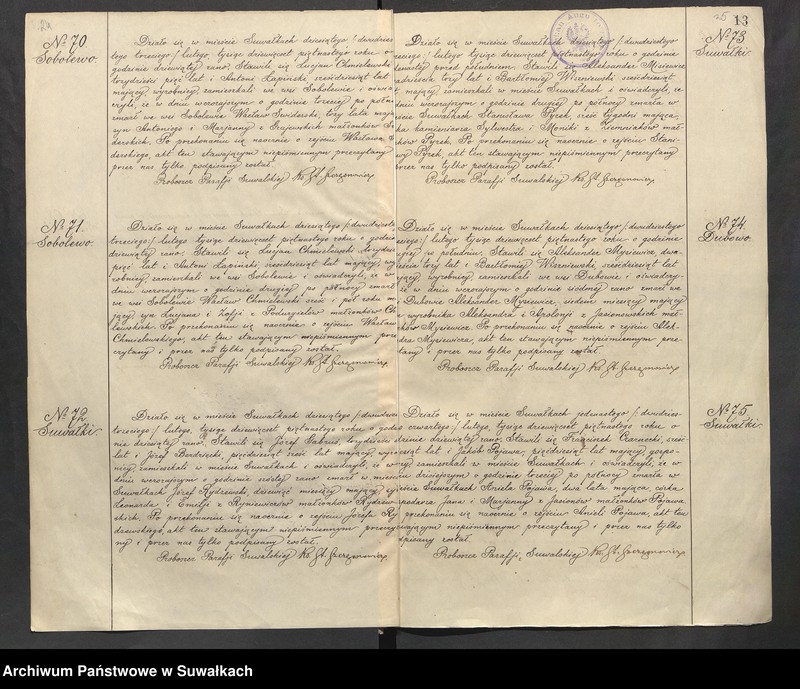 No 70
Sobolewo.
Działo się w mieście Suwałkach dziesiątego /dwudzies-
tego trzeciego/ lutego tysiąc dziewięćset piętnastego roku o
godzinie dziewiątej rano. Stawili się Lucjan Chmielewski
trzydzieści pięć lat i Antoni Łapiński sześćdziesiąt lat
mający wyrobnicy, zamieszkali we wsi Sobolewie i oświad
czyli, że w dniu wczorajszym o godzinie trzeciej po półn
zmarł we wsi Sobolewie Wacław Świderski, trzy lata mają
syn Antoniego i Marjanny z Grajewskich małżonków Ś
derskich. Po przekonaniu się naocznie o zejściu Wacława Ś
derskiego, akt ten stawającym niepiśmiennym przeczytany
przez nas tylko podpisany został.
Proboszcz Parafji Suwalskiej Ks. St.
No 71.
Sobolewo.
Działo się w mieście Suwałkach dziesiątego /dwudziestego
trzeciego/ lutego tysiąc dziewięćset piętnastego roku o godzin
dziewiątej rano. Stawili się Lucjan Chmielewski trzydzi
pięć lat i Antoni Łapiński, sześćdziesiąt lat mający wy
robnicy, zamieszkali we wsi Sobolewie i oświadczyli, że w
dniu wczorajszym o godzinie drugiej po północy zmarł
we wsi Sobolewie Wacław Chmielewski sześć i pół roku m
jący, syn Lucjana i Zofji z małżonków Ch
lewskich. Po przekonaniu się naocznie o zejściu Wacław
Chmielewskiego, akt ten stawającym niepiśmiennym prze
czytany i przez nas tylko podpisany został.
Proboszcz Parafji Suwalskiej Ks. St.
No 72.
Suwałki.
Działo się w mieście Suwałkach dziesiątego /dwudzies
trzeciego/ lutego, tysiąc dziewięćset piętnastego roku o godzi
nie dziesiątej rano. Stawili się Józef trzydzieści
lat i Józef pięćdziesiąt sześć lat mający, wyro
nicy zamieszkali w mieście Suwałkach i oświadczyli, że w
dniu wczorajszym o godzinie szóstej rano zmarł w mieście
Suwałkach Józef Rydzewski, dziewięć miesięcy mający, sy
Leonarda i Emelji z małżonków Rydzew
skich. Po przekonaniu się naocznie o zejściu Józefa Ry
dzewskiego, akt ten stawającym niepiśmiennym przeczyta
ny i przez nas tylko podpisany został.
Proboszcz Parafji Suwalskiej Ks. St.
25 13
No 73
Suwałki.
Działo się w mieście Suwałkach dziesiątego /dwudziestego
trzeciego/ lutego tysiąc dziewięćset piętnastego roku o godzinie
przed południem. Stawili się Aleksander Misiewicz
dwadzieścia trzy lat i Bartłomiej Wiszniewski sześćdziesiąt
lat mający, zamieszkali w mieście Suwałkach i oświadczyli, że
dniu wczorajszym o godzinie drugiej po północy zmarła w
mieście Suwałkach Stanisława Pyzek, sześć tygodni mająca,
córka kamieniarza Sylwestra i Moniki z Ziemniaków mał-
żonków Pyzek. Po przekonaniu się naocznie o zejściu Stani-
sławy Pyzek, akt ten stawającym niepiśmiennym przeczytany
przez nas tylko podpisany został.
Proboszcz Parafji Suwalskiej Ks. St.
No 74.
Dubowo.
Działo się w mieście Suwałkach dziesiątego /dwudziestego
trzeciego/ lutego tysiąc dziewięćset piętnastego roku o godzinie
drugiej po południu. Stawili się Aleksander Mysiewicz dwa-
dzieścia trzy lat i Bartłomiej Wiszniewski, sześćdziesiąt lat
mający wyrobnicy, zamieszkali we wsi Dubowie i oświadczy-
li, że w dniu wczorajszym o godzinie siódmej rano zmarł we
wsi Dubowie Aleksander Mysiewicz, siedem miesięcy mający
syn wyrobnika Aleksandra i Apolonji z Jasionowskich mał-
żonków Mysiewicz. Po przekonaniu się naocznie o zejściu Alek-
sandra Mysiewicza, akt ten stawającym niepiśmiennym prze-
czytany i przez nas tylko podpisany został.
Proboszcz Parafji Suwalskiej Ks. St.
No 75.
Suwałki.
Działo się w mieście Suwałkach jedenastego /dwudzies-
tego czwartego/ lutego, tysiąc dziewięćset piętnastego roku o
godzinie dziewiątej rano. Stawili się Franciszek Czarnecki, sześć-
dziesiąt lat i Jakób Pojawa, pięćdziesiąt lat mający, gospo-
darzy zamieszkali w mieście Suwałkach i oświadczyli, że w
dniu dzisiejszym o godzinie trzeciej po północy zmarła w
mieście Suwałkach Aniela Pojawa, dwa lata mająca, córka
gospodarza Jana i Marjanny z Jasionów małżonków Pojawa.
Po przekonaniu się naocznie o zejściu Anieli Pojawa, akt ten
stawającym niepiśmiennym przeczytany i przez nas tylko
podpisany został.
Proboszcz Parafji Suwalskiej Ks. St.
Archiwum Państwowe w Suwałkach